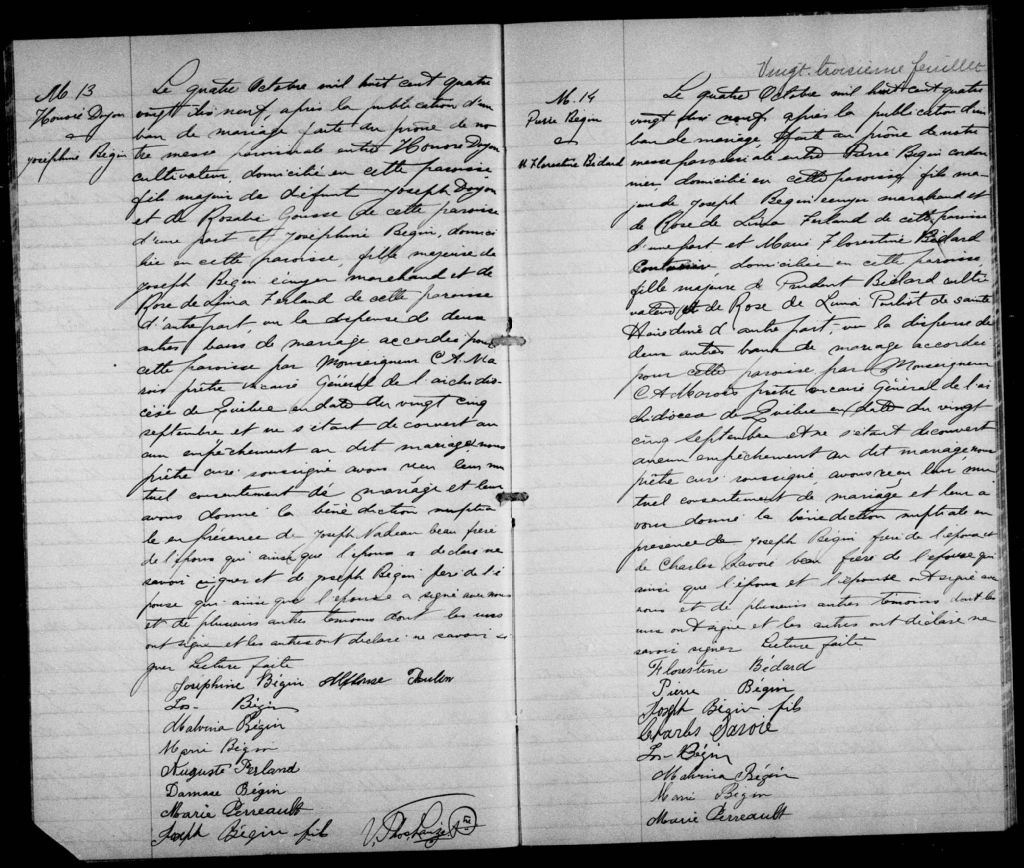 M 13
Honoré Doyon
&
Joséphine Bégin
Le quatre Octobre mil huit cent quatre
vingt dix neuf, après la publication d'un
ban de mariage faite au prône de no
tre messe paroissiale entre Honoré Doyon
cultivateur, domicilié en cette paroisse
fils majeur de défunt Joseph Doyon
et de Rosalie Gousse de cette paroisse
d'une part et Joséphine Begin, domici
liée en cette paroisse, fille majeure de
Joseph Begin écuyer marchand et de
Rose de Lima Ferland de cette paroisse
d'autre part, vu la dispense de deux
autres bans de mariage accordée pour
cette paroisse par Monseigneur C. A. Ma
rois prêtre vicaire Général de l'archidio
cèse de Québec en date du vingt cinq
septembre et ne s'étant découvert au
cun empêchement au dit mariage, nous
prêtre curé soussigné avons reçu leur mu
tuel consentement de mariage et leur
avons donné la bénédiction nuptia
le en présence de Joseph Nadeau beau frère
de l'époux qui ainsi que l'époux a déclaré ne
savoir signer et de Joseph Bégin père de l'é
pouse qui ainsi que l'épouse a signé avec nous
et de plusieurs autres témoins dont les uns
ont signé et les autres ont déclaré ne savoir si
gner Lecture faite
Joséphine Bégin Alfonse Poulin
Jos- Bégin
Malvina Bégin
Marie Bégin
Auguste Ferland
Damase Bégin
Marie Perreault
Joseph Bégin fils
Vingt-troisième feuillet
M. 14
Pierre Bégin
&
M. Florestine Bédard
Le quatre Octobre mil huit cent quatre
vingt dix neuf, après la publication d'un
ban de mariage, faite au prône de notre
messe paroissiale entre Pierre Begin cordon
nier, domicilié en cette paroisse, fils ma
jeur de Joseph Begin écuyer marchand et
de Rose de Lima Ferland de cette paroisse
d'une part et Marie Florestine Bédard
Couturière, domiciliée en cette paroisse,
fille majeure de Prudent Bédard culti
vateur et de Rose de Lima Pouliot de sainte
Hénédine d'autre part, vu la dispense de
deux autres bans de mariage accordée
pour cette paroisse par Monseigneur
C A Marois prêtre vicaire Général de l'ar
chidiocèse de Québec en date du vingt
cinq septembre et ne s'étant découvert
aucun empêchement au dit mariage, nous
prêtre curé soussigné, avons reçu leur mu
tuel consentement de mariage et leur a
vons donné la bénédiction nuptiale en
présence de Joseph Bégin frère de l'époux et
de Charles Savoie beau frère de l'épouse qui
ainsi que l'époux et l'épouse ont signé avec
nous et de plusieurs autres témoins dont les
uns ont signé et les autres ont déclaré ne
savoir signer Lecture faite
Florestine Bédard
Pierre Bégin
Joseph Bégin fils
Charles Savoie
Jos- Bégin
Malvina Bégin
Marie Bégin
Marie Perreault